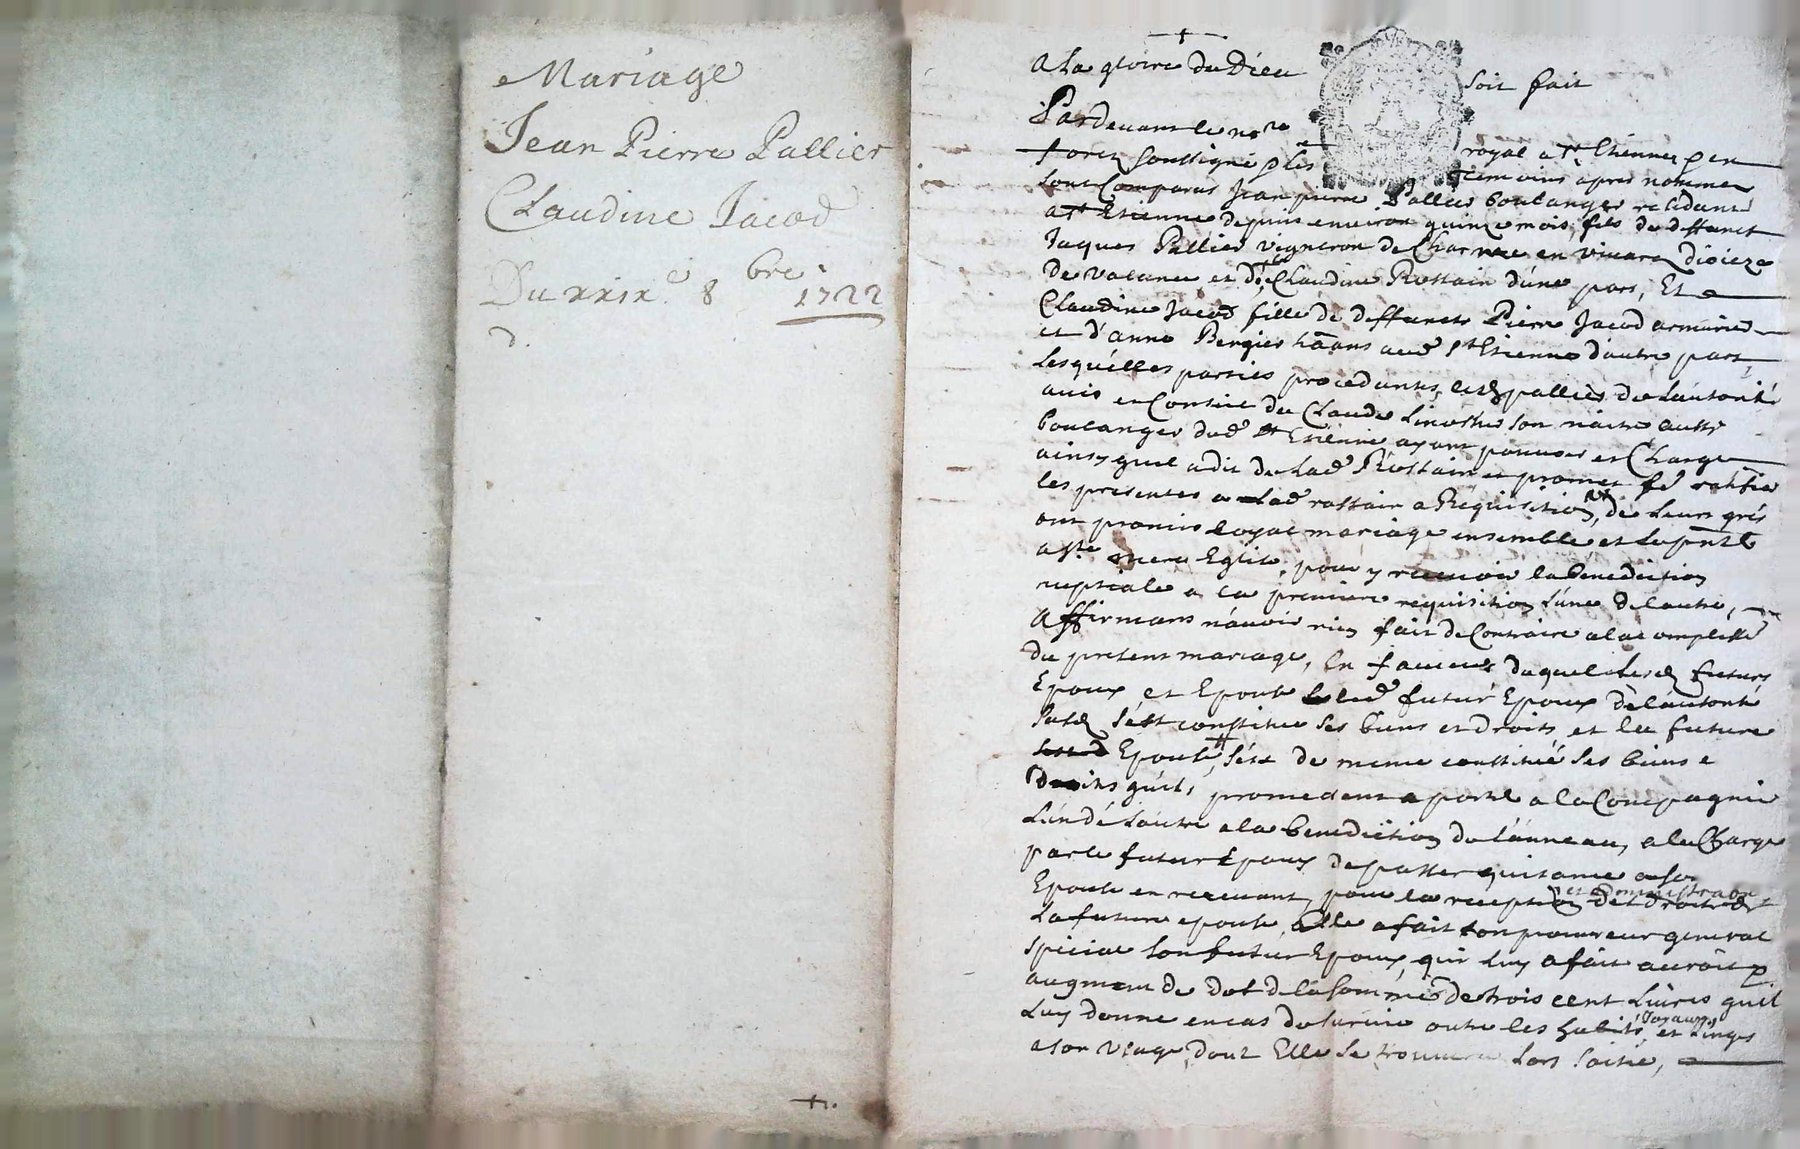 Mariage
Jean Pierre Pallier
Claudine Jacod
Du xxix.e 8bre 1722
d.
A la gloire de Dieu soit fait
Pardevant le no.re royal a St Etienne en
forez soussigné & les temoins apres nommez
sont Comparus Jean pierre Pallier boulanger residant
a St Etienne depuis environ quinze mois, fils de deffunct
Jaques Pallier vigneron de Charnee en vivarez dioieze
de valance et de Claudine Rostain d'une part, Et
Claudine Jacod fille de deffuncts Pierre Jacod armurier
et d'anne Bergier hãans aud St Etienne d'autre part
Lesquelles parties procedantes, led pallier de l'autorité
avis et Conseil de Claude Linossier son maitre aussy
boulanger dud St Etienne ayant pouvoir et Charge
ainsy quil a dit de lad Rostain et promet fe ratifier
les presentes a lad rostain a Requisition, de leurs grés
ont promis loyal mariage ensemble et se pnter
a Ste mere Eglise, pour y recevoir la benediction
nuptiale a la premiere requisition l'une de l'autre,
Affirmans n'avoir rien fait de Contraire al acomplisst
du present mariage, En faveur duquel lesd futurs
Epoux et Epouse led futur Epoux de l'autorité
susd s'est constitué ses biens et droits et la future
Epouse, s'est de meme constitué ses biens e
Droits quils promettent aporter a la Compagnie
l'un de l'autre a la benediction de l'anneau, a la Charge
par le futur Epoux de passer quitance a son
Epouse en recevant, pour la reception et administraon des droits de
La future epouse, Elle a fait son procureur general
special son futur Epoux, qui luy a fait acroit p
augment de dot de la somme de trois cent Livres quil
Luy donne en cas de survie outre les habits, Joyaux, et Linges
a son usage, dont Elle se trouvera lors saisie,